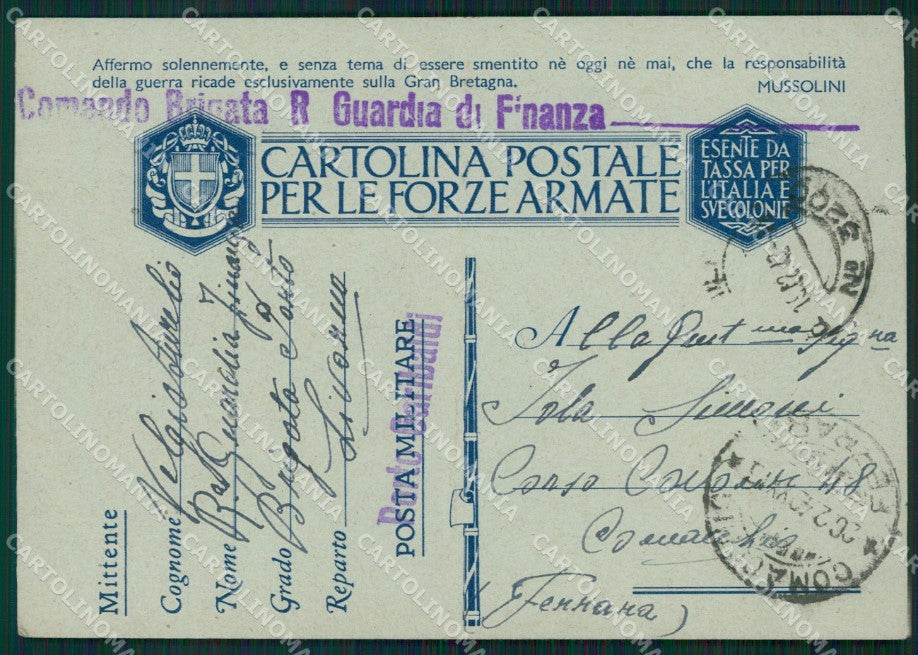 Affermo solennemente, e senza tema di essere smentito nè oggi nè mai, che la responsabilità
della guerra ricade esclusivamente sulla Gran Bretagna.
MUSSOLINI
Comando Brigata R Guardia di Finanza
CARTOLINA POSTALE
PER LE FORZE ARMATE
ESENTE DA
TASSA PER
L'ITALIA E
SVE COLONIE
Mittente
Cognome
Nome R. Guardia finanza
Grado Brigata Porto
Reparto Livorno
POSTA MILITARE
Porto Garibaldi
Alla Gent ma Sig na
Iola Simoni
Corso 48
Comacchio
(Ferrara)
COMACCHIO
FERRARA
CARTOLINOMANIA